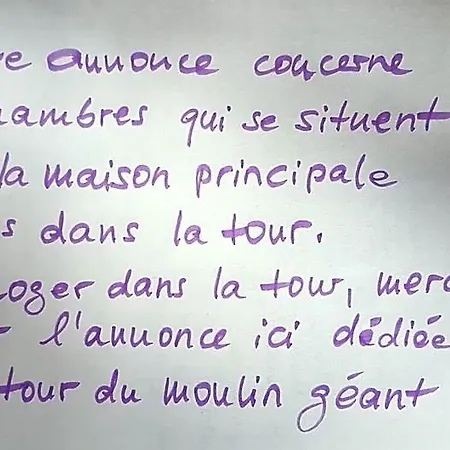 re annonce concerne
hambres qui se situent
la maison principale
s dans la tour.
loger dans la tour, merc
r l'annonce ici dédiée
tour du moulin géant